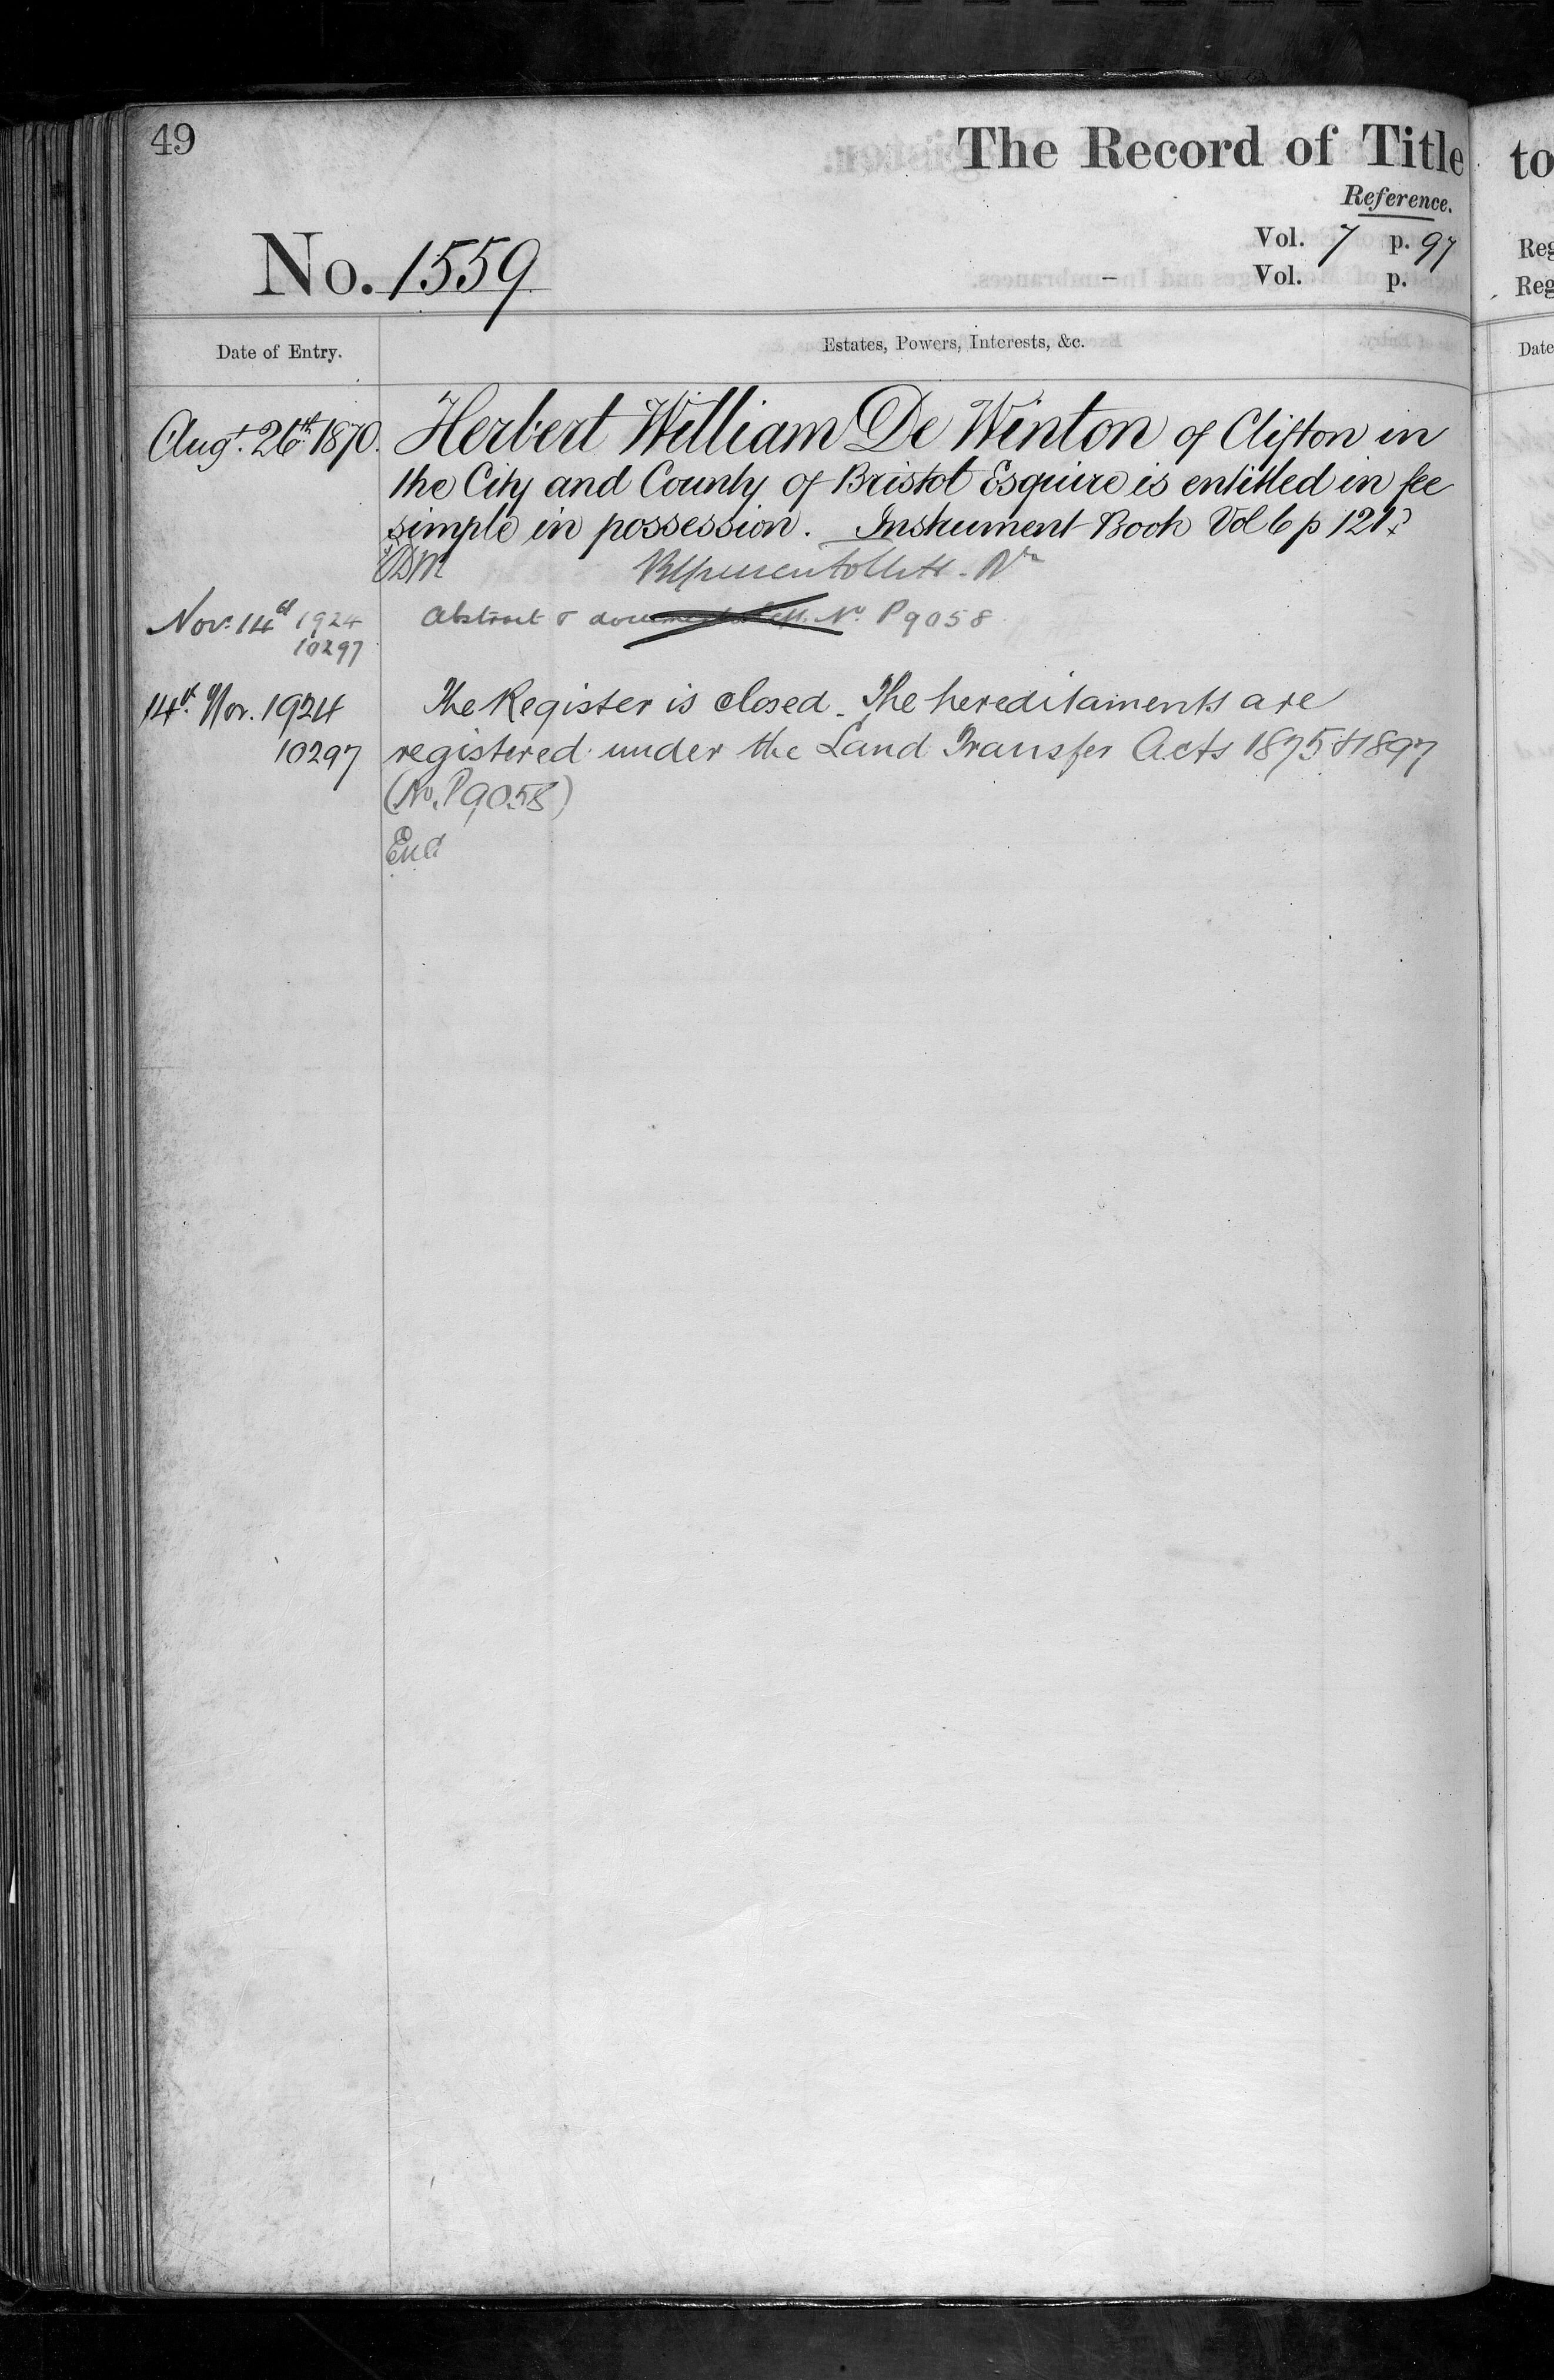 49
The Record of Title
to
Reference.
Vol. 7 p. 97
Vol. p.
Reg
Reg
No. 1559
Date of Entry.
Estates, Powers, Interests, &c.
Date
Augt. 26th 1870.
Herbert William De Winton of Clifton in
the City and County of Bristol Esquire is entitled in fee
simple in possession. Instrument Book Vol 6 p 121
Nov. 14 1924
10297
Abstract & No. P9058
14th Nov. 1924
10297
The Register is closed. The hereditaments are
registered under the Land Transfer Acts 1875 & 1897
(No. P9058)